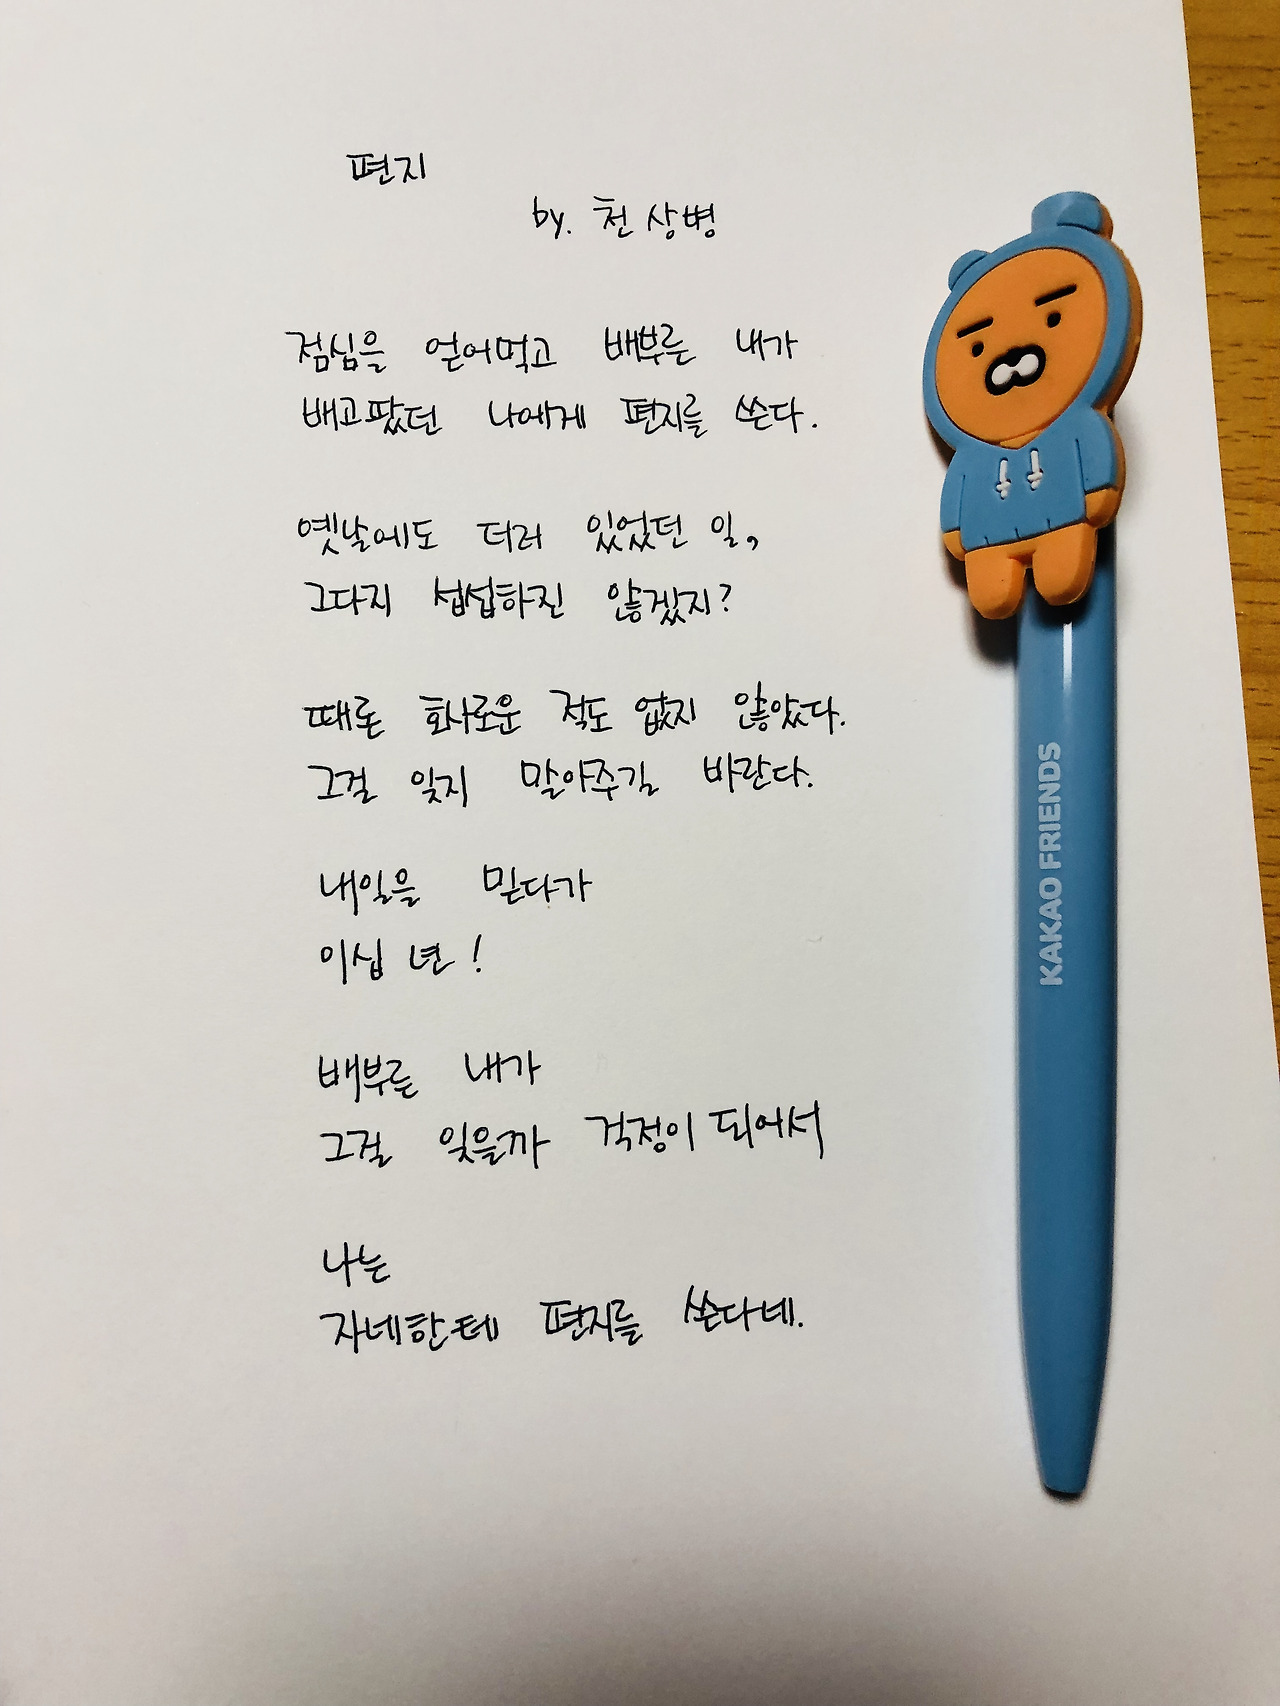 편지
by. 천상병
점심을 얻어먹고 배부른 내가
배고팠던 나에게 편지를 쓴다.
옛날에도 더러 있었던 일,
그다지 섭섭하진 않겠지?
때론 화사로운 적도 없지 않았다.
그걸 잊지 말아주길 바란다.
내일을 믿다가
이십 년!
배부른 내가
그걸 잊을까 걱정이 되어서
나는
자네한테 편지를 쓴다네.
KAKAO FRIENDS